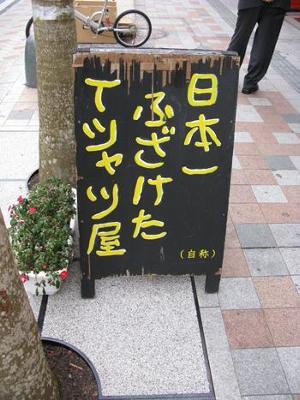 日本一
ふざけた
Tシャツ屋
(自称)